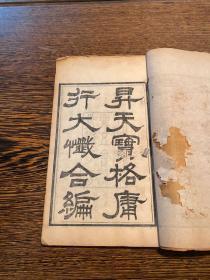 昇天寶格庸
行大懺合編